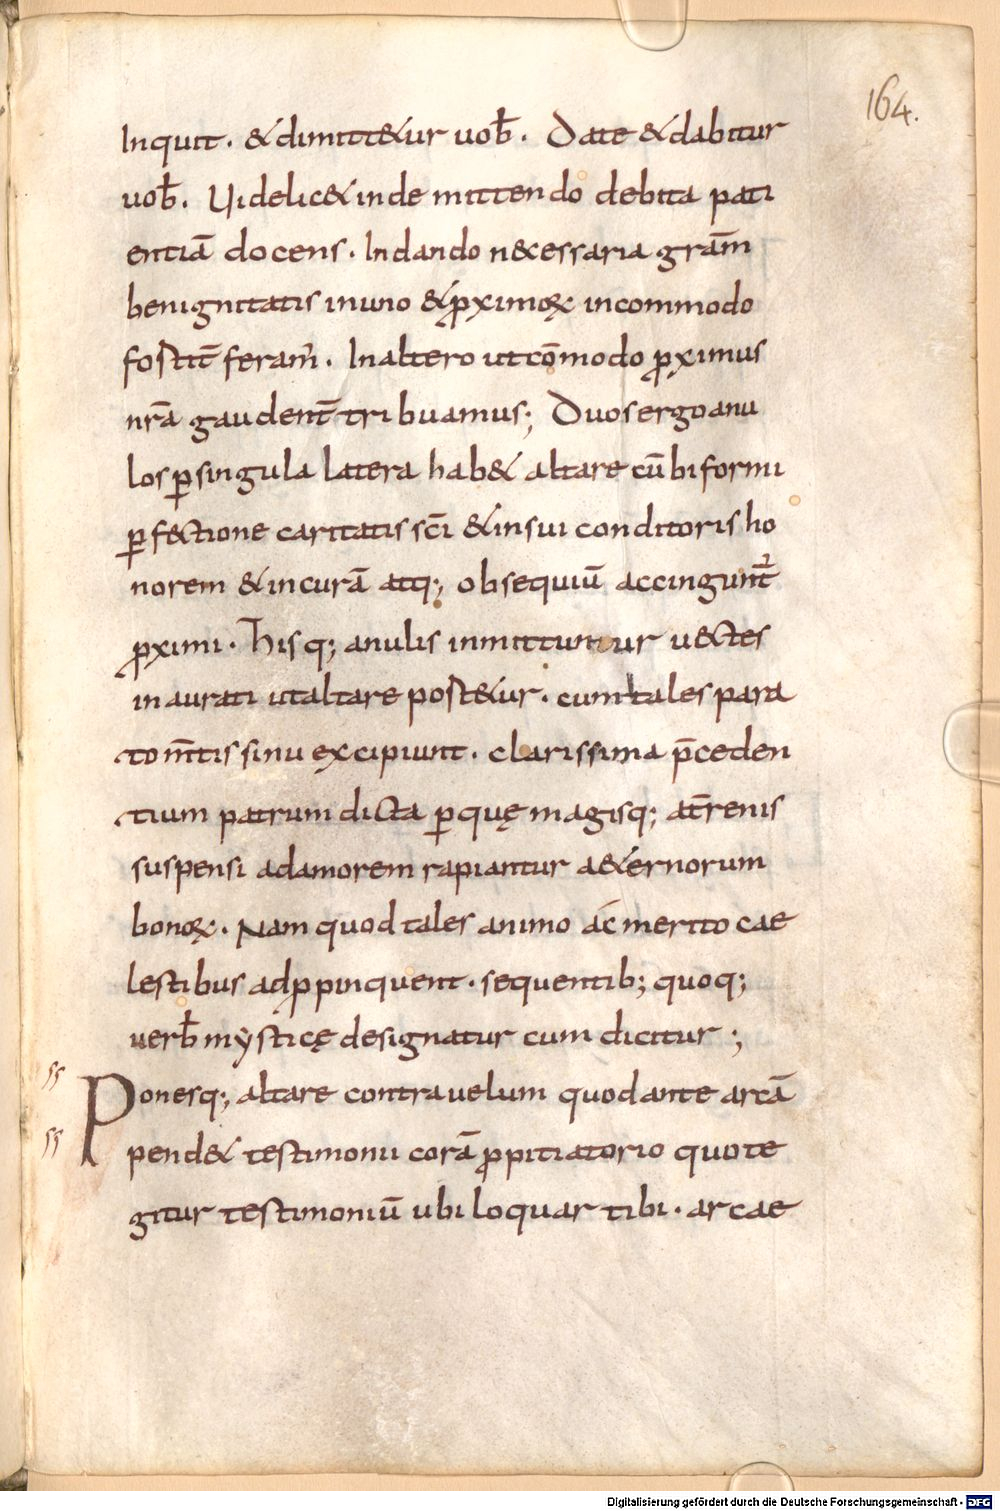 164.
Inquit. & dimitt&ur uob̄. Date & dabitur
uob̄. Uidelic& inde mittendo debita pati
entiā docens. In dando n&cessaria gra̅m
benignitatis inuno & ꝓximoꝝ incommodo
fostit̄ feram̄. In altero ut cōmodo ꝓximus
nr̄a gaudent̄ tribuamus; Duos ergo anu
los ꝑ singula latera hab& altare cū biformi
ꝑf&ctione caritatis sc̄i & in sui conditoris ho
norem & in curā atq; obsequiū accingunt̄
ꝓximi. Hisq; anulis inmittuntur u&ctes
inaurati ut altare post&ur. cum tales para
to m̄tis sinu excipiunt. clarissima p̄ceden
tium patrum dicta ꝑ quę magisq; at̄renis
suspensi ad amorem rapiantur a&ernorum
bonoꝝ. Nam quod tales animo ác merito cae
lestibus adꝓpinquent. sequentib; quoq;
uerb̄ mẏsticę designatur cum dicitur;
ss Ponesq; altare contra uelum quod ante arcā
ss pend& testimonii corā ꝓpitiatorio quo te
gitur testimoniū ubi loquar tibi. arcae
Digitalisierung gefördert durch die Deutsche Forschungsgemeinschaft - DFG